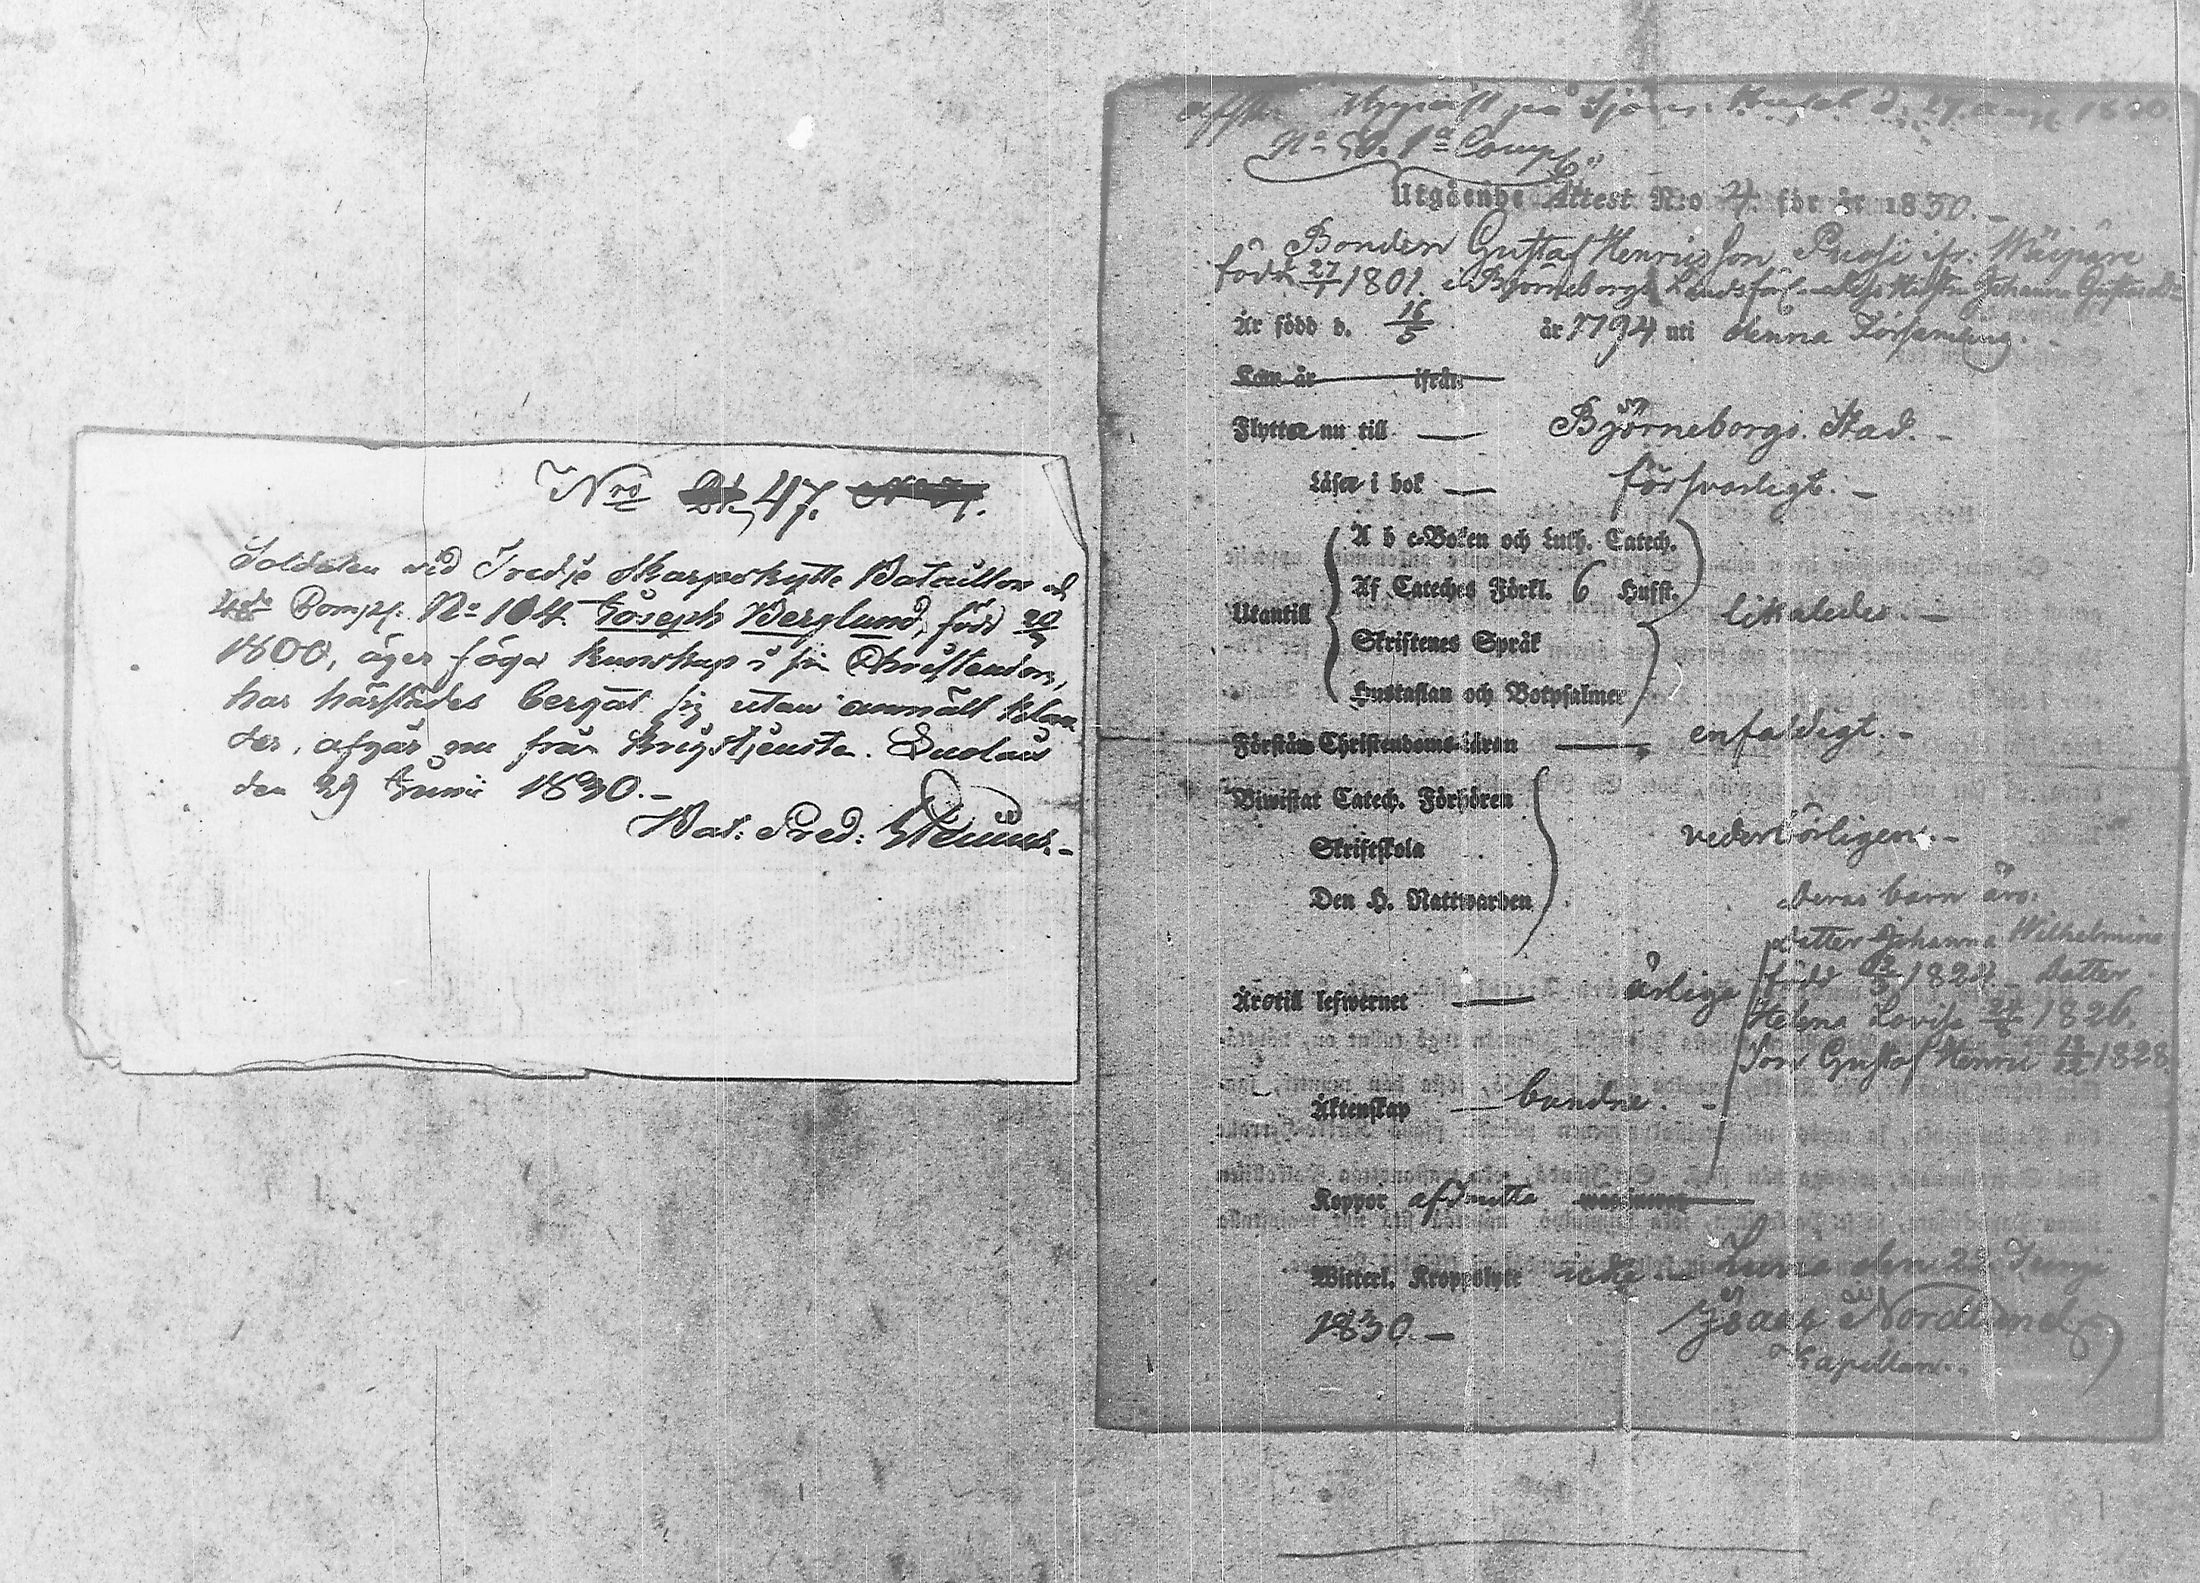 Nro 47.
Soldaten vid Tredje Skarpskytte Bataillon och
4de Comp. No 104 Joseph Berglund, född 20/9
1800, äger föga kunskap i sin Christendom,
har härstädes begåt sig utan anmält klan
der, afgår nu från krigstjensten.
den 29 Junii 1830.
Bat: Pred:
No 59. 1a Comp
Utgående Attest N:o 4. för år 1830.
Bonden Gustaf Henricsson
född 27/1 1801. i Björneborgs Landsförs. Hustru Johanna
Är född d. 16/5 år 1794 uti denna Församling.
Kom år ifrån
Flyttar nu till Björneborgs Stad.
Läser i bok försvarligt.
A b c-Boken och Luth. Catech.
Af Cateches Förkl. 6 Hufst.
Utantill likaledes.
Skriftenes Språk
Hustaflan och Botpsalmer
Förstår Christendoms läran enfaldigt.
Biwistat Catech. Förhören
Skriftskola vederbörligen.
Den H. Nattwarden
deras barn äro:
dotter Johanna Wilhelmina
Äro till lefwernet ärliga
född 1824. Dotter
Helena Lovisa 1826.
Son Gustaf Henric 1828.
Äktenskap bundne.
Koppor
Witterl. Kroppslyte icke. den 22 Junii
1830. Isaac Nordlund
Capellan.